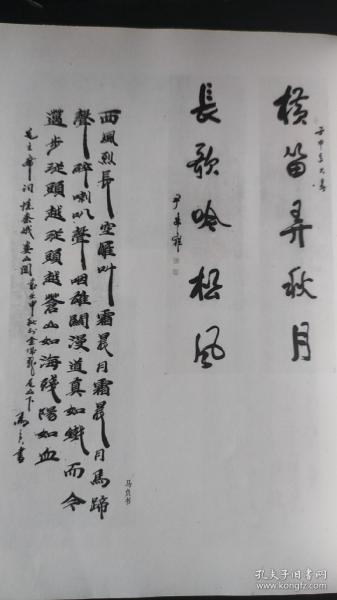 横笛弄秋月
長歌吟松風
西風烈長空雁叫霜晨月霜晨月馬蹄
聲碎喇叭聲咽雄關漫道真如鐵而今
邁步從頭越從頭越蒼山如海殘陽如血
毛主席詞憶秦娥婁山關
孔夫子旧书网